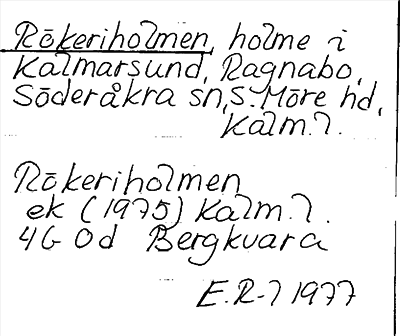 Rökeriholmen, holme i
Kalmarsund, Ragnabo,
Söderåkra sn, S. Möre hd,
Kalm. l.
Rökeriholmen
ek (1975) Kalm. l.
4G 0d Bergkvara
E.R-l 1977